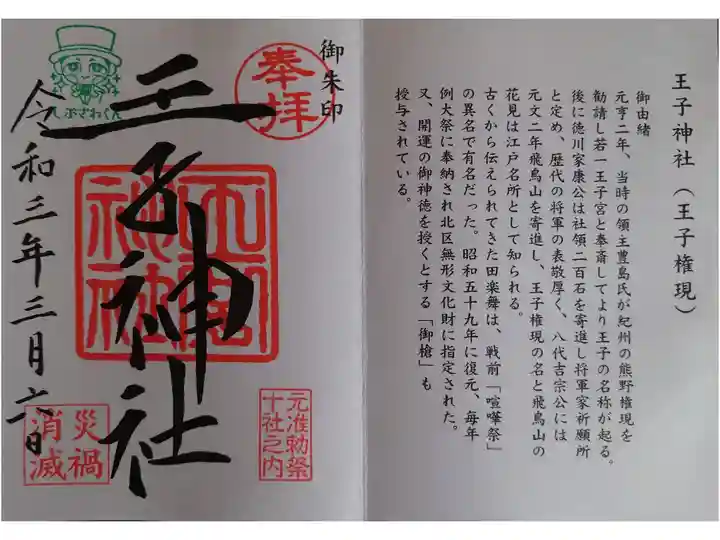 王子神社（王子権現）
御由緒
元亨二年、当時の領主豊島氏が紀州の熊野権現を
勧請し若一王子宮と奉斎してより王子の名称が起る。
後に徳川家康公は社領二百石を寄進し将軍家祈願所
と定め、歴代の将軍の表敬厚く、八代吉宗公には
元文二年飛鳥山を寄進し、王子権現の名と飛鳥山の
花見は江戸名所として知られる。
古くから伝えられてきた田楽舞は、戦前「喧嘩祭」
の異名で有名だった。昭和五十九年に復元、毎年
例大祭に奉納され北区無形文化財に指定された。
又、開運の御神徳を授くとする「御槍」も
授与されている。
御朱印
奉拝
王子神社
王子神社
元准勅祭
十社之内
しぶざわくん
令和三年三月六日
災禍
消滅